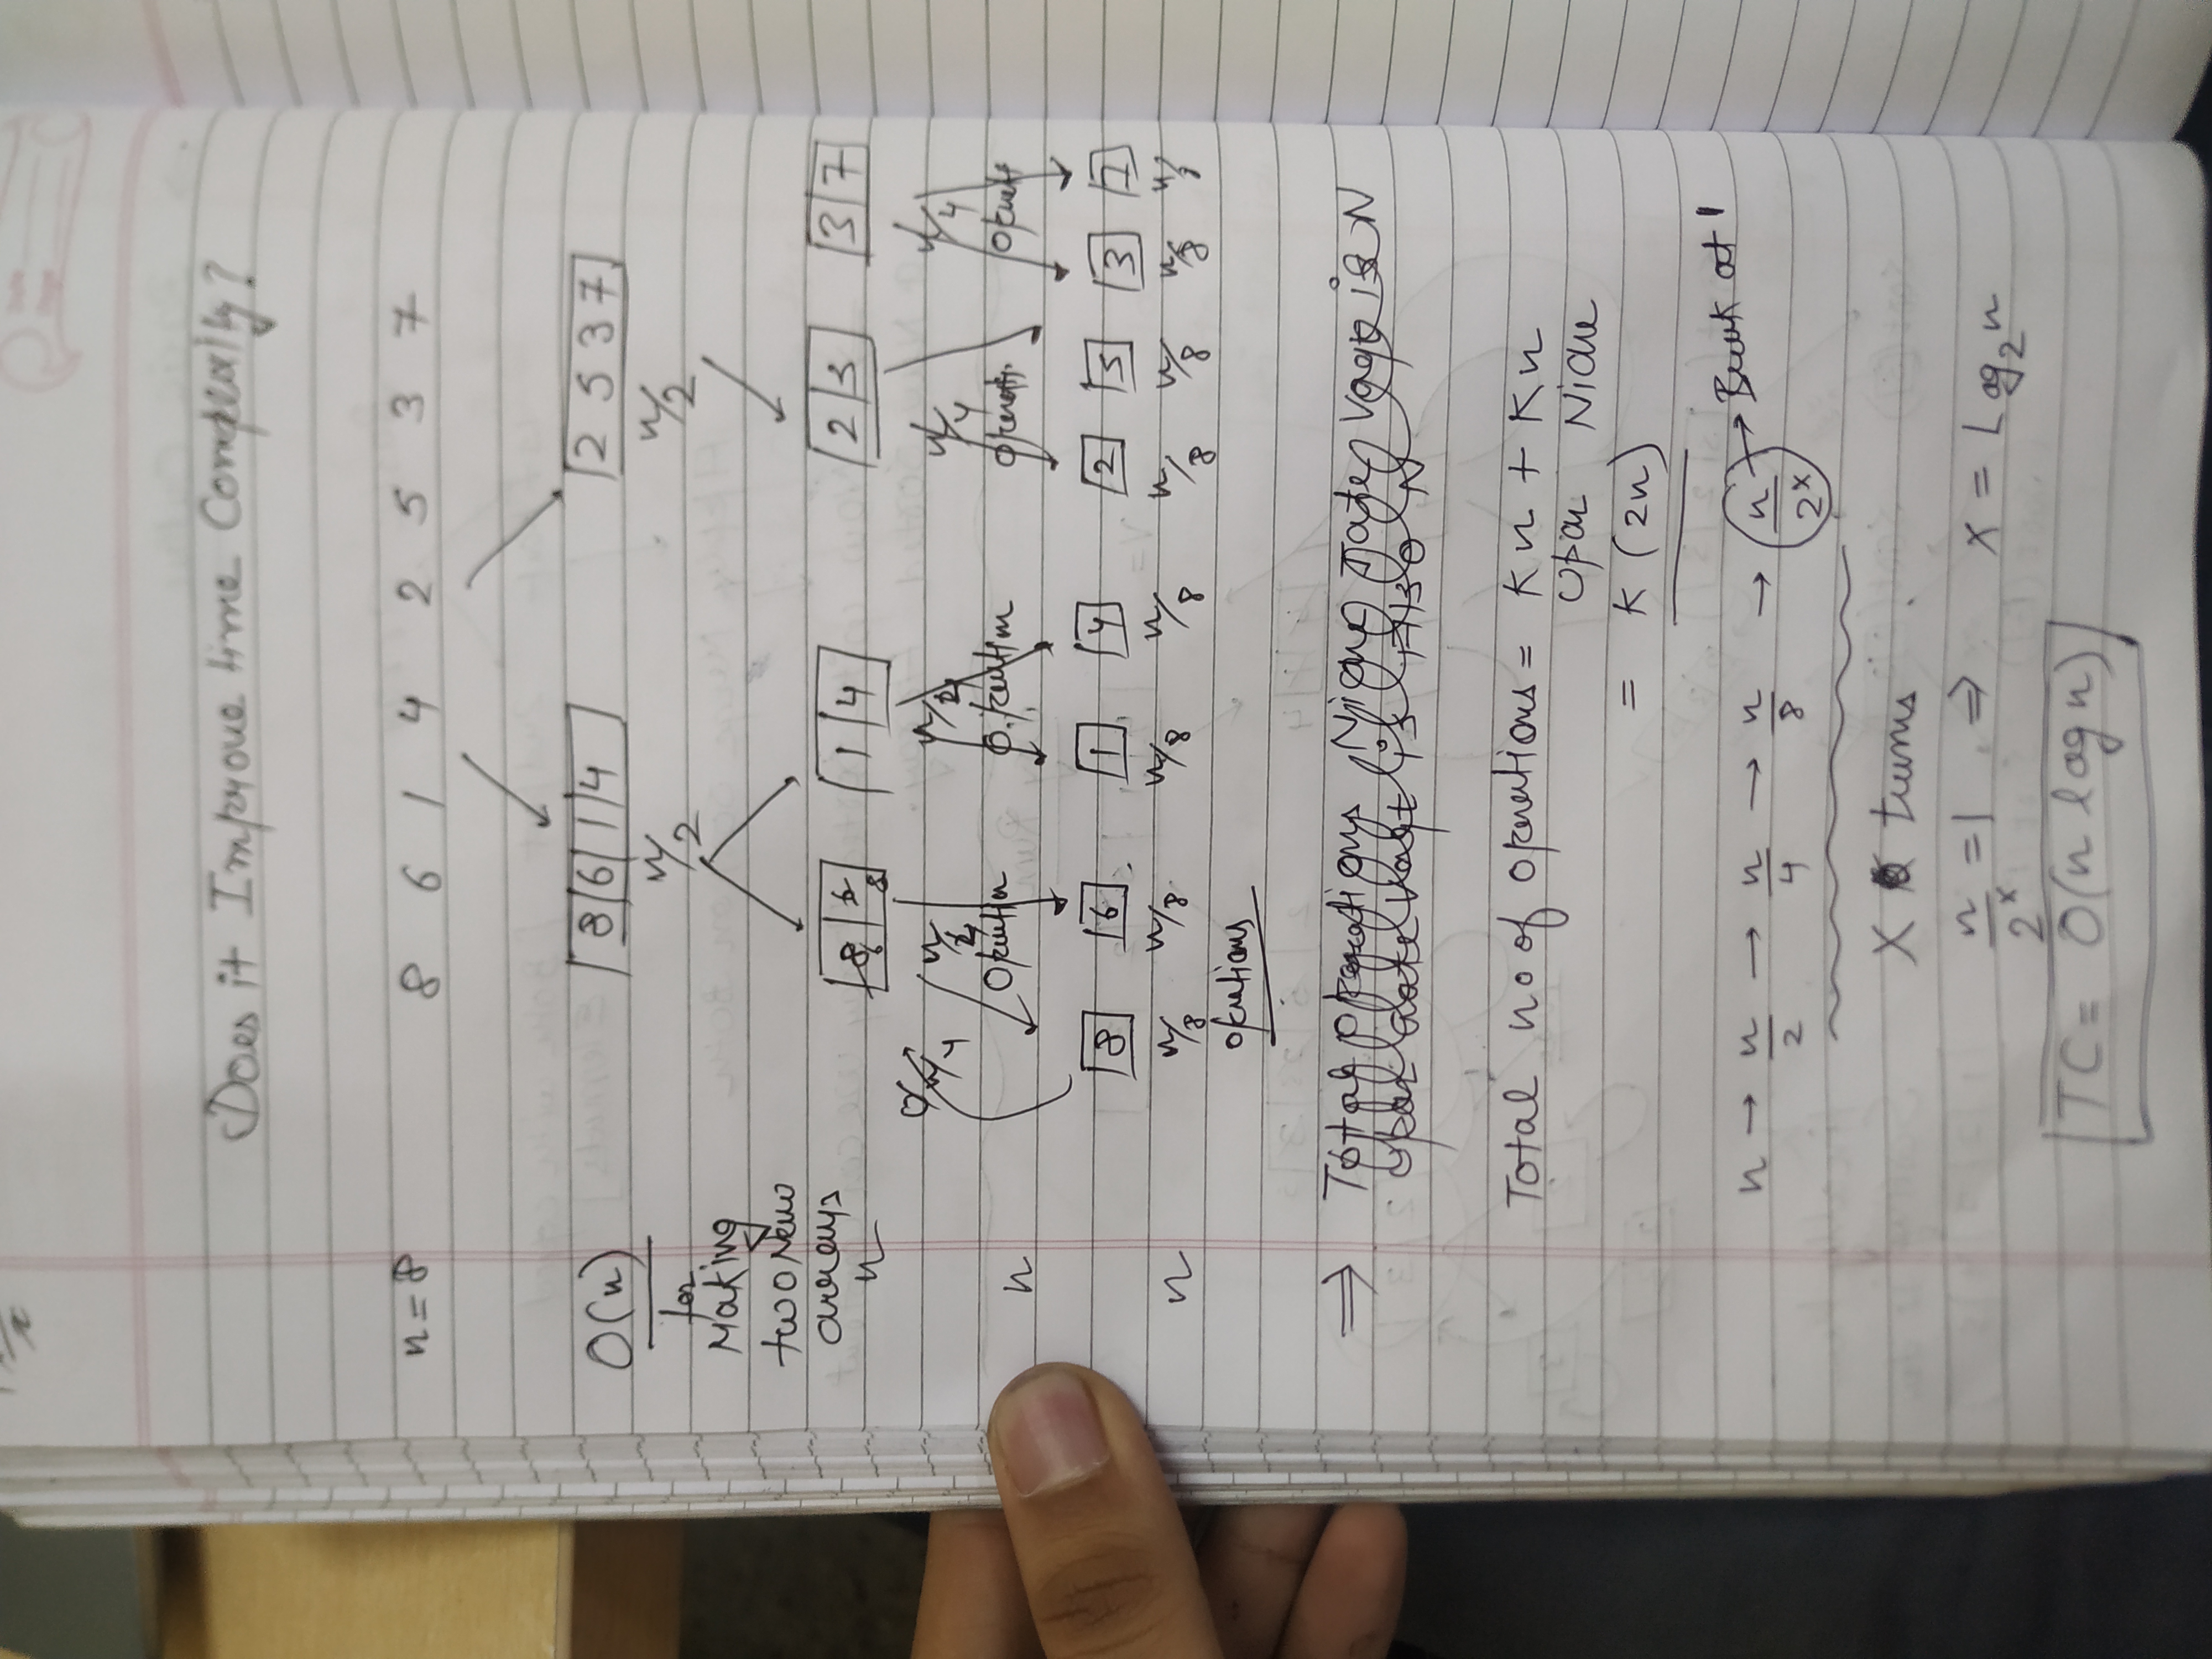 Does it Improve time Complexity?
n = 8 8 6 1 4 2 5 3 7
O(n) 8 6 1 4 2 5 3 7
for n/2 n/2
Making
two New
arrays 8 6 1 4 2 3 3 7
n 6 8
n/4 n/4 n/4 n/4
n Opeution Operation Operat. Operat
8 6 1 4 2 5 3 7
n n/8 n/8 n/8 n/8 n/8 n/8 n/8
operations
⇒ Total Operations Niche Jate Vaqt is N
Upar Jate Vaqt is Also N
Total no of operations = Kn + Kn
Upar Niche
= K (2n)
n → n/2 → n/4 → n/8 → n/2^x → Break at 1
X turns
n/2^x = 1 ⇒ x = Log₂n
TC = O(n log n)